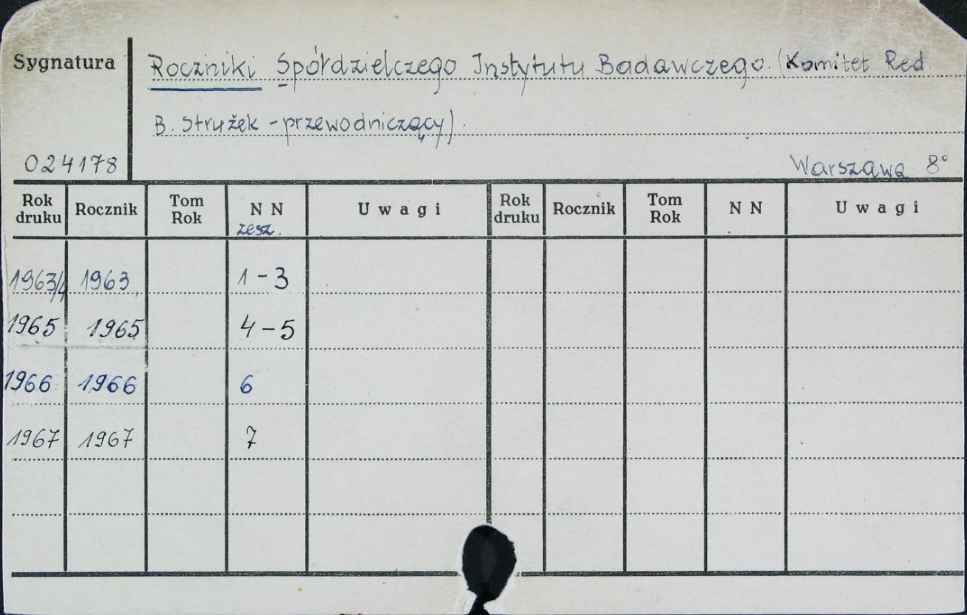 Sygnatura
Roczniki Spółdzielczego Instytutu Badawczego. (Komitet Red
B. Strużek - przewodniczący).
024178
Warszawa 8°
Rok druku Rocznik Tom Rok N N zesz. Uwagi Rok druku Rocznik Tom Rok N N Uwagi
1963/4 1963 1-3
1965 1965 4-5
1966 1966 6
1967 1967 7